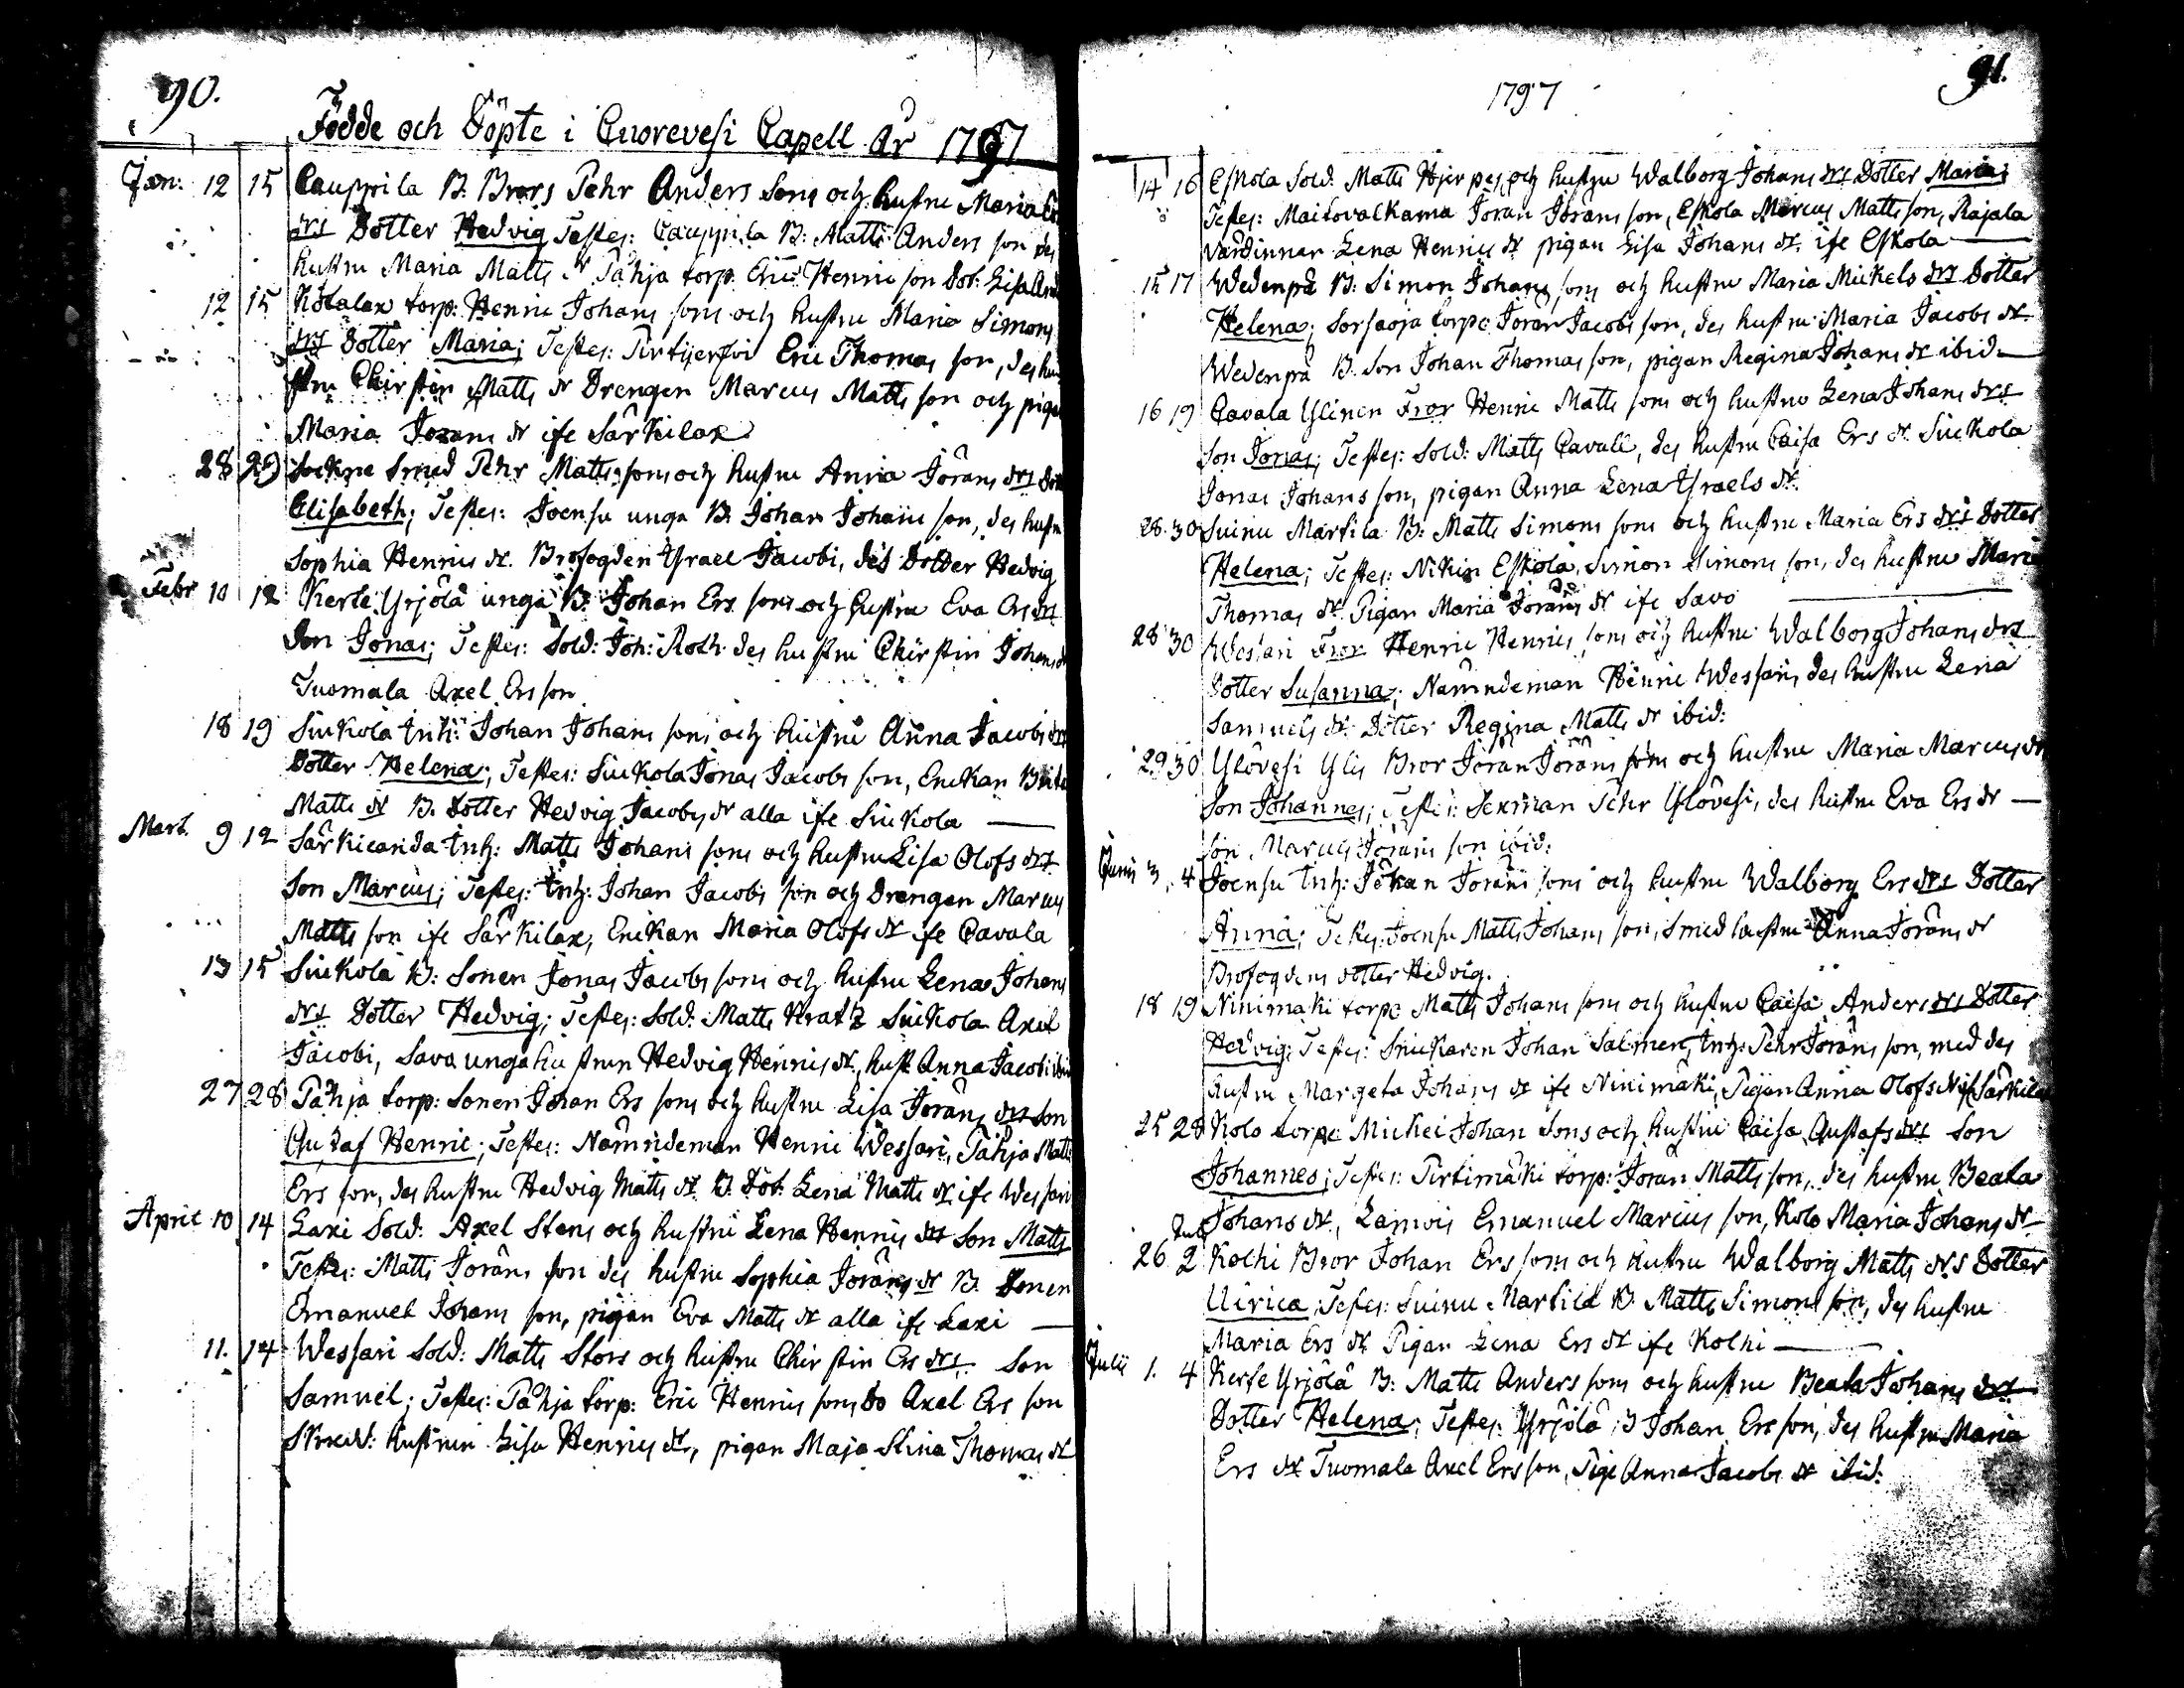 90.
Födde och Döpte i Cuorevesi Capell År 1797
Jan: 12 15 Cauppila B. Brors Pehr Anders sons och hustru Maria
drs Dotter Hedvig Testes: Cauppila B: Matts Anders son des
hustru Maria Matts dr Pähja torp. Eric Henric son Dot: Lisa
12 15 Kotalax torp: Henric Johans sons och hustru Maria Simons
drs Dotter Maria; Testes: Eric Thomas son, des hu-
stru Chirstin Matts dr Drengen Marcus Matts son och pigan
Maria Jorans dr ifr Särkilax
28 29 Sockne Smed Pehr Matts sons och hustru Anna Jörans drs
Elisabeth; Testes: Joensu unga B. Johan Johans son, des hustru
Sophia Henrics dr. Brofogden Ysrael Jacobi, des Dotter Hedvig
Febr 10 12 Kerte Yrjölä unga B. Johan Ers sons och hustru Eva Ers drs
Son Jonas; Testes: Sold: Joh: Roth des hustru Chirstin Johans dr
Tuomala Axel Ers son
18 19 Suckola Inh: Johan Johans sons och hustru Anna Jacobs drs
Dotter Helena; Testes: Suckola Jonas Jacobs son, Enckan Brita
Matts dr B. Dotter Hedvig Jacobs dr alla ifr Suckola
Mart. 9 12 Särkicanda Inh: Matts Johans sons och hustru Lisa Olofs drs
Son Marcus; Testes: Inh: Johan Jacobs son och Drengen Marcus
Matts son ifr Särkilax, Enckan Maria Olofs dr ifr Cavala
13 15 Suckola B: Sonen Jonas Jacobs sons och hustru Lena Johans
drs Dotter Hedvig; Testes: Sold: Matts Kratz Suckola Axel
Jacobi, Savo unga hustrun Hedvig Henrics dr, hust Anna Jacobi ibid
27 28 Pähja torp: Sonen Johan Ers sons och hustru Lisa Jörans drs Son
Gustaf Henric; Testes: Nämndeman Henric Wessari, Pähja Matts
Ers son, des hustru Hedvig Matts dr B. Dot: Lena Matts dr ifr Wessari
April 10 14 Laxi Sold: Axel Stens och hustru Lena Henrics drs Son Matts
Testes: Matts Jörans son des hustru Sophia Jörans dr B. Sonen
Emanuel Johans son, pigan Eva Matts dr alla ifr Laxi
11. 14 Wessari Sold: Matts Stors och hustru Chirstin Ers drs Son
Samuel; Testes: Pähja torp: Eric Henrics son, do Axel Ers son
hustrun Lisa Henrics dr, pigan Maja Stina Thomas dr
1797
91.
14 16 Eskola Sold. Matts Hjerpes och hustru Walborg Johans drs Dotter Maria;
Testes: Maitovalkama Joran Jörans son, Eskola Marcus Matts son, Rajala
Värdinnan Lena Henrics dr pigan Lisa Johans dr. ifr Eskola
15 17 Wedenpä B: Simon Johans sons och hustru Maria Mickels drs Dotter
Helena; torp: Joran Jacobs son, des hustru Maria Jacobs dr
Wedenpä B. Son Johan Thomas son, pigan Regina Johans dr ibid
16 19 Cavala Ylinen Bror Henric Matts sons och hustru Lena Johans drs
Son Jonas; Testes: Sold: Matts Cavall, des hustru Caisa Ers dr Suckola
Jonas Johans son, pigan Anna Lena Ysraels dr.
28. 30 Suinu Martila B: Matts Simons sons och hustru Maria Ers drs Dotter
Helena; Testes: Nikin Eskola, Simon Simons son, des hustru Maria
Thomas dr Pigan Maria Jörans dr ifr Savo
28 30 Wessari Bror Henric Henrics sons och hustru Walborg Johans drs
Dotter Susanna; Nämndeman Henric Wessari, des hustru Lena
Samuels dr Dotter Regina Matts dr ibid:
29 30 Ylövesi Ylis Bror Jöran Jörans sons och hustru Maria Marcus drs
Son Johannes; Testes: Sexman Pehr Ylövesi, des hustru Eva Ers dr
son Marcus Jörans son ibid:
Junii 3. 4 Joensu Inh: Johan Jörans sons och hustru Walborg Ers drs Dotter
Anna; Testes: Joensu Matts Johans son, Smed hustru Anna Jörans dr
Brofogdens dotter Hedvig.
18 19 Ninimäki torp: Matts Johans sons och hustru Caisa Anders drs Dotter
Hedvig; Testes: Snickaren Johan Salmen, Inh: Pehr Jörans son, med des
hustru Margeta Johans dr ifr Ninimäki, Pigan Anna Olofs dr ifr Särkilax
25 28 Kolo torp: Mickel Johan Sons och hustru Caisa Gustafs drs Son
Johannes; Testes: Pirtimäki torp: Jöran Matts son, des hustru Beata
Johans dr, Lamois Emanuel Marcus son, Kolo Maria Johans dr
Juli
26 2 Kolhi Bror Johan Ers sons och hustru Walborg Matts drs Dotter
Ulrica; Testes: Suinu Martila B. Matts Simons son, des hustru
Maria Ers dr Pigan Lena Ers dr ifr Kolhi
Julii 1. 4 Kerte Yrjölä B: Matts Anders sons och hustru Beata Johans drs
Dotter Helena; Testes: Yrjölä B Johan Ers son, des hustru Maria
Ers dr Tuomala Axel Ers son, Pig: Anna Jacobs dr ibid: